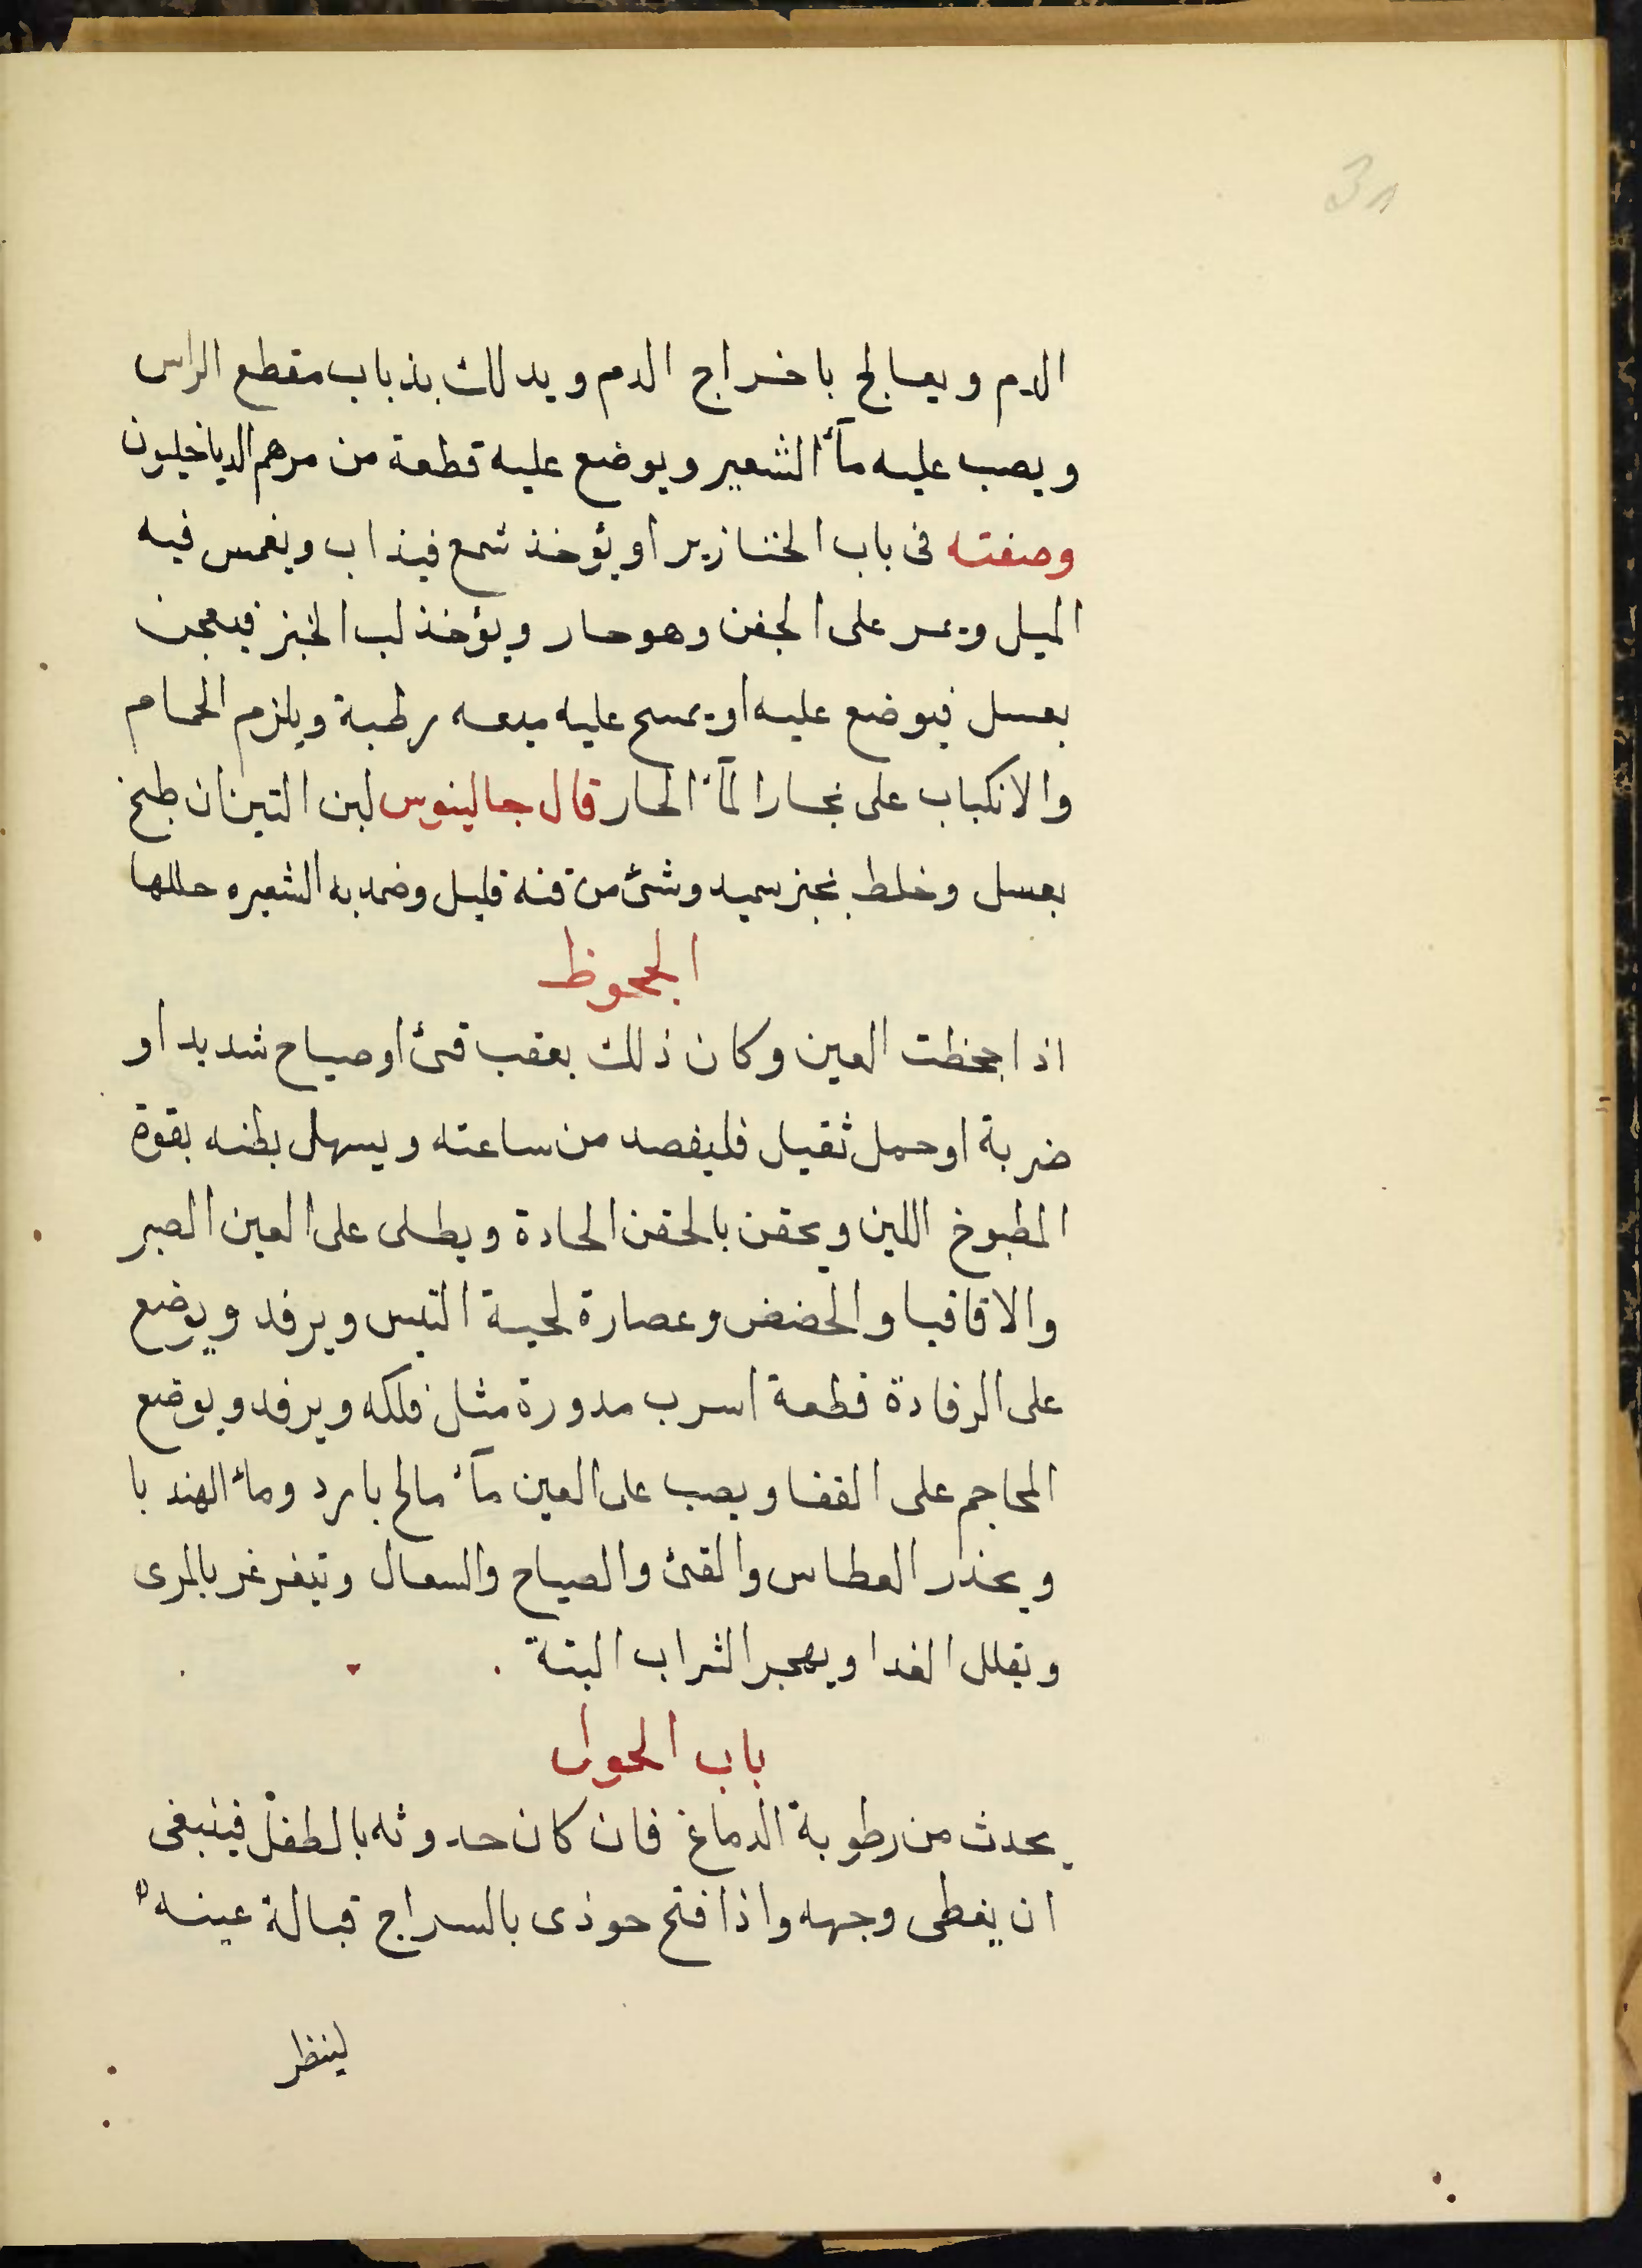 الدم ويعالج باخراج الدم ويدلك بذباب مقطع الراس
ويصب عليه مآء الشعير ويوضع عليه قطعة من مرهم الدياخيلون
وصفته فى باب الخنازير او يؤخذ شمع فيذاب ويغمس فيه
الميل ويمر على الجفن وهو حار ويؤخذ لب الخبز فيعجن
بعسل فيوضع عليه او يمسح عليه ميعه رطبة ويلزم الحمام
والانكباب على بخار المآء الحار قال جالينوس لبن التين ان طبخ
بعسل وخلط بخبز سميد وشئ من قنه قليل وضمد به الشعيره حللها
الجحوظ
اذا جحظت العين وكان ذلك بعقب قئ او صياح شديد او
ضربة او حمل ثقيل فليفصد من ساعته ويسهل بطنه بقوة
المطبوخ اللين ويحقن بالحقن الحادة ويطلى على العين الصبر
والاقاقيا والحضض وعصارة لحية التيس ويرفد ويوضع
على الرفادة قطعة اسرب مدورة مثل فلكه ويرفد ويوضع
المحاجم على القفا ويصب على العين مآء مالح بارد وماء الهند با
ويحذر العطاس والقئ والصياح والسعال وتيغرغر بالمرى
ويقلل الغدا ويهجر الشراب البتة
باب الحول
يحدث من رطوبة الدماغ فان كان حدوثه بالطفل فينبغى
ان يغطى وجهه واذا فتح حوذى بالسراج قبالة عينه
لينظر